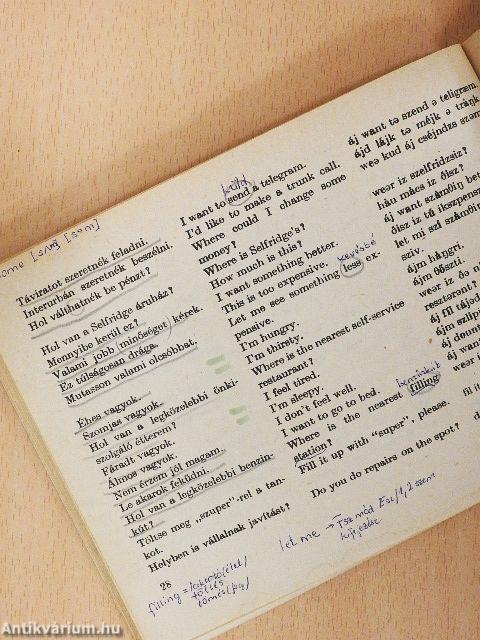 ome [sʌm] [səm]
Táviratot szeretnék feladni.
Interurbán szeretnék beszélni.
Hol válthatnék be pénzt?
Hol van a Selfridge áruház?
Mennyibe kerül ez?
Valami jobb minőséget kérek.
Ez túlságosan drága.
Mutasson valami olcsóbbat.
Éhes vagyok.
Szomjas vagyok.
Hol van a legközelebbi önki-
szolgáló étterem?
Fáradt vagyok.
Álmos vagyok.
Nem érzem jól magam.
Le akarok feküdni.
Hol van a legközelebbi benzin-
kút?
Töltse meg „szuper”-rel a tan-
kot.
Helyben is vállalnak javítást?
28
küld
I want to send a telegram.
I'd like to make a trunk call.
Where could I change some
money?
Where is Selfridge's?
How much is this?
I want something better.
This is too expensive.
kevésbé
Let me see something less ex-
pensive.
I'm hungry.
I'm thirsty.
Where is the nearest self-service
restaurant?
I feel tired.
I'm sleepy.
I don't feel well.
I want to go to bed.
benzinkút
Where is the nearest filling
station?
Fill it up with "super", please.
Do you do repairs on the spot?
áj want tə szend ə teligræm.
ájd lájk tə méjk ə tránk
weə kud áj cséindzs szəm
weər iz szelfridzsiz?
háu mács iz ðisz?
áj want számθiŋ bet
ðisz iz tú ikszpensz
let mi szí számθiŋ
sziv.
ájm háŋgri.
ájm θöszti.
weər iz ðə ni
resztərant?
áj fíl tájəd
ájm szlípi
áj dount
áj want
weər i
fil it
d
let me → Tsz. mód E.sz./1,2 szem
kifejezése
filling =
töltés
tömés (fog)
Antikvárium.hu